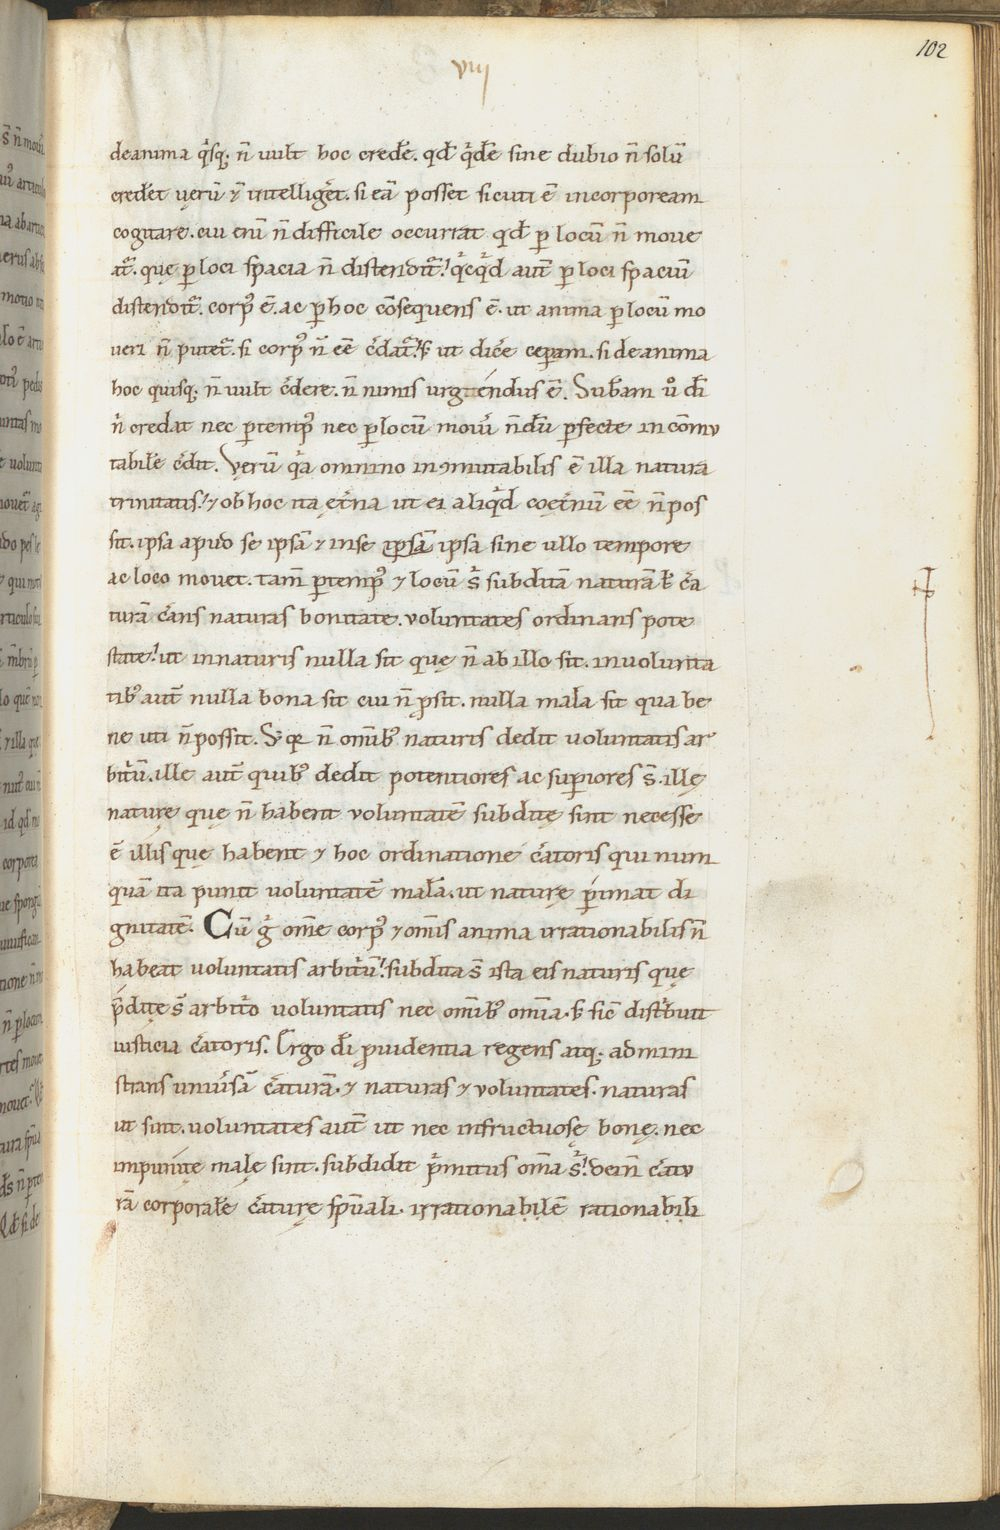 102
viij
de anima q̇sq; n̄ uult hoc credēr. qđ q̇dē sine dubio n̄ solū
credēt uerū & intelligēt. si eā posset sicuti ē incorpoream
cogitare. cui enī n̄ difficile occurrat qđ ꝑ locū n̄ moue
at᷑. quę ꝑ loci spacia n̄ distendit᷑. q̇cq̇d aut̄ ꝑ loci spaciū
distendit᷑. corpꝰ ē. ac ꝑ hoc cōsequens ē. ut anima ꝑ locū mo
ueri n̄ putet᷑. si corpꝰ n̄ eē c̄dat᷑. s; ut dicē ceperam. si de anima
hoc quisq; n̄ uult c̄dere. n̄ nimis urgtendus ē. Subam ů dī
n̄ credat nec ꝑ tempꝰ nec ꝑ locū mouī n̄dū ꝑfecte incōmu
tabilē c̄dit. Verū q̇a omnino inꝯmutabilis ē illa natura
trinitatis. & ob hoc ita et̄na ut ei aliq̇d coęt̄nū eē n̄ pos
sit. ipsa apud se ipsā & in se ipsā ipsa sine ullo tempore
ac loco mouet. tam̄ ꝑ tempꝰ & locū s̄ subditā naturā s; c̄a
turā c̄ans naturas bonitate. uoluntates ordinans pote
state. ut in naturis nulla sit quę n̄ ab illo sit. in uolunta
tibꝰ aut̄ nulla bona sit cui n̄ ꝓsit. nulla mala sit qua be
ne uti n̄ possit. S; q̄ n̄ om̄ibꝰ naturis dedit uoluntatis ar
bit̄ū. ille aut̄ quibꝰ dedit potentiores ac suꝑiores s̄. ille
naturę quę n̄ habent uoluntatē subditę sint necesse
ē illis quę habent & hoc ordinatione c̄atoris qui num
quā ita punit uoluntatē malā. ut naturę ꝑimat di
gnitatē. Cū ḡ om̄e corpꝰ & om̄is anima irrationabilis n̄
habeat uoluntatis arbit̄ū. subdita s̄ ista eis naturis quę
p̄ditę s̄ arbit̄o uoluntatis nec om̄ibꝰ om̄ia. s; sic̄ distribuit
iusticia c̄atoris. Ergo dī ꝓuidentia regens atq; admini
strans uniūsā c̄aturā. & naturas & uoluntates. naturas
ut sint. uoluntates aut̄ ut nec infructuosę bonę. nec
impunitę malę sint. subdidit p̄mitus om̄a s̄. dein̄ c̄atu
rā corporalē c̄aturę sp̄uali. irrationabilē rationabili